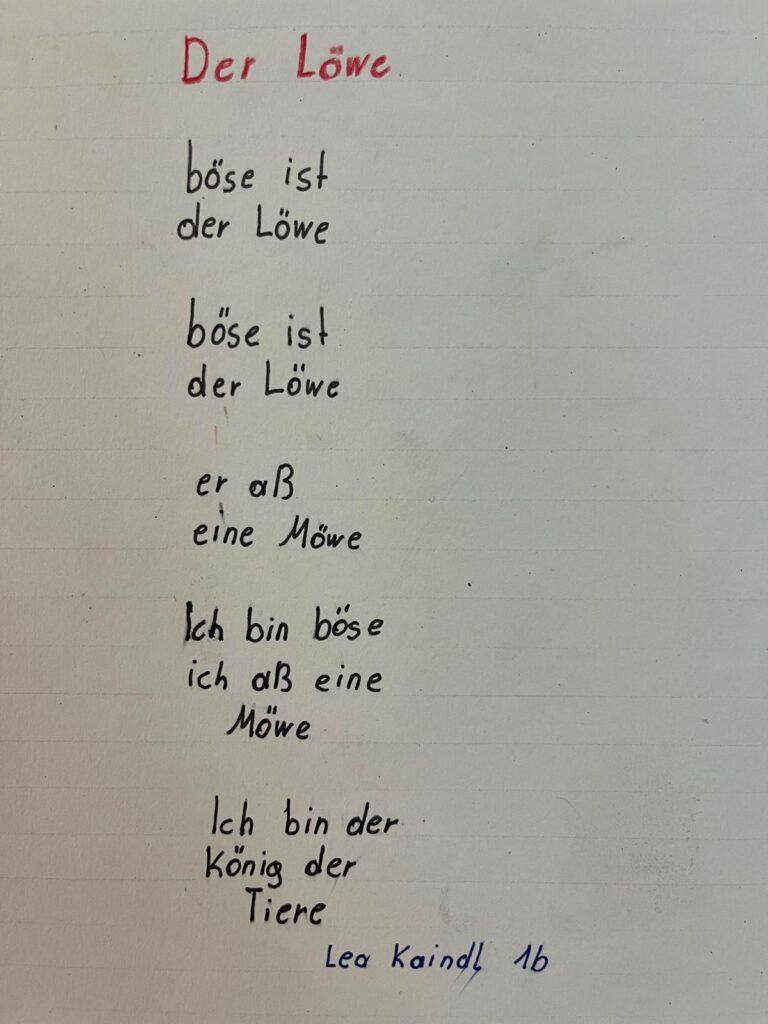 Der Löwe
böse ist
der Löwe
böse ist
der Löwe
er aß
eine Möwe
Ich bin böse
ich aß eine
Möwe
Ich bin der
König der
Tiere
Lea Kaindl 1b